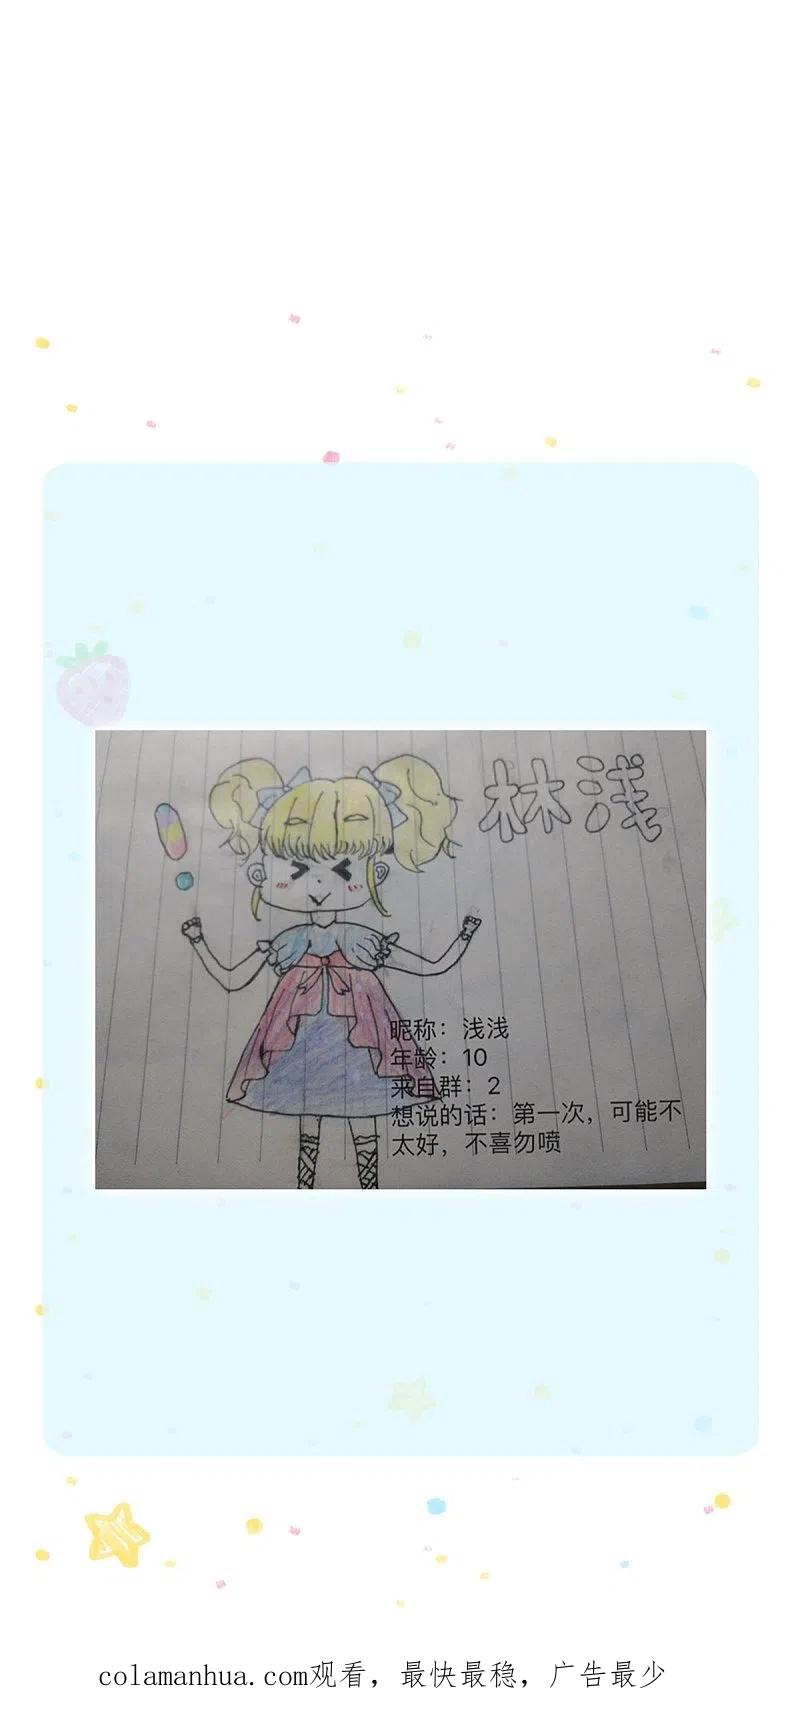 林浅
昵称：浅浅
年龄：10
来自群：2
想说的话：第一次，可能不
太好，不喜勿喷
colamanhua.com观看，最快最稳，广告最少